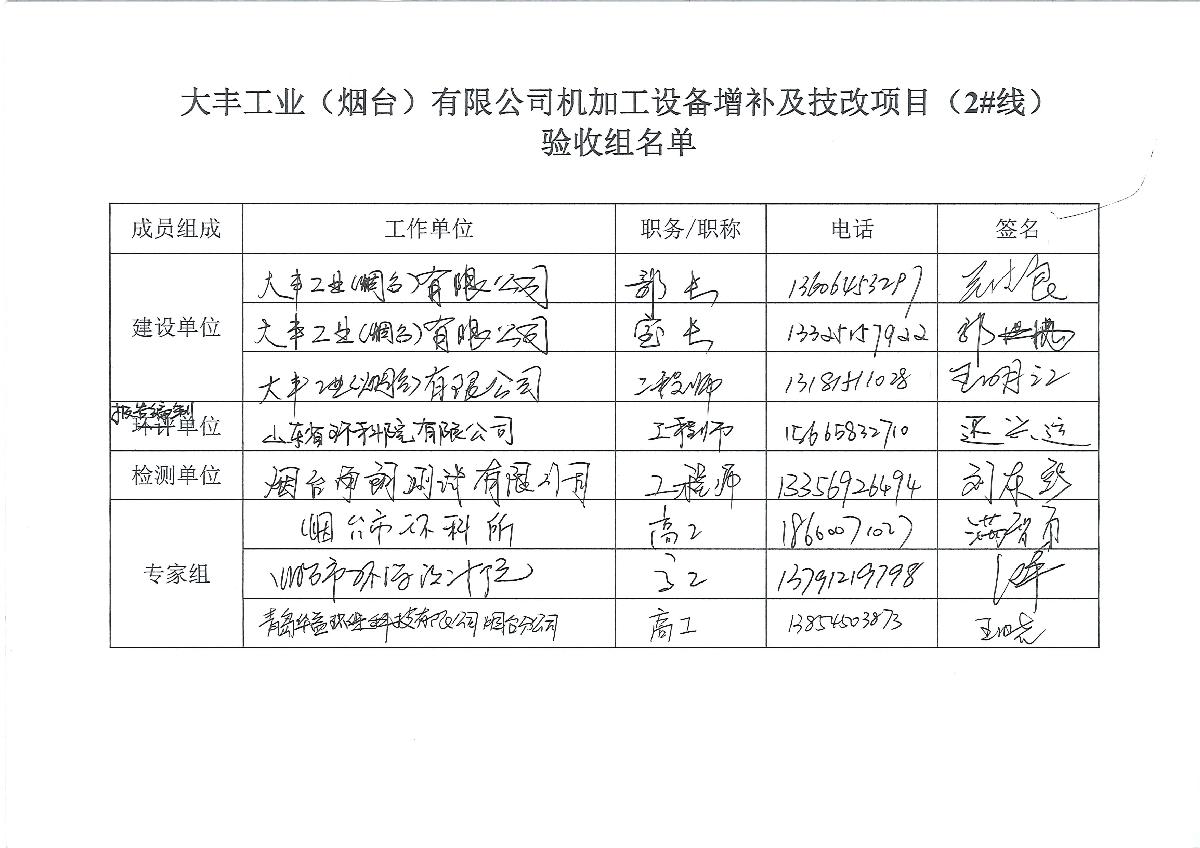 大丰工业（烟台）有限公司机加工设备增补及技改项目（2#线）
验收组名单
成员组成 工作单位 职务/职称 电话 签名
建设单位 大丰工业(烟台)有限公司 部长 13606453297
大丰工业(烟台)有限公司 室长 13325157922
大丰工业(烟台)有限公司 工程师 13181511028
报告编制
环评单位 山东省环科院有限公司 工程师 15665832710
检测单位 烟台 测试有限公司 工程师 13356926494 刘
专家组 烟台市环科所 高工 18660071027
烟台市环 设计院 高工 13791219798
青岛华益环保科技有限公司烟台分公司 高工 13854503873 王